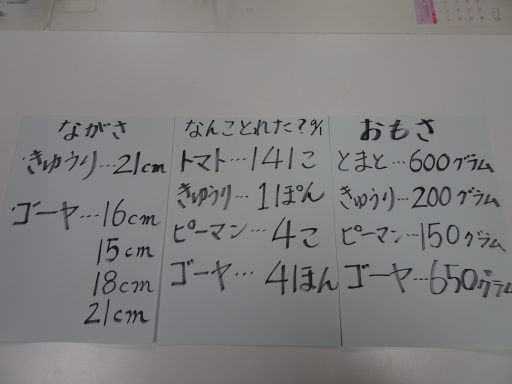 ながさ
・きゅうり…21cm
・ゴーヤ…16cm
15cm
18cm
21cm
なんことれた？9/1
トマト…141こ
きゅうり…1ぽん
ピーマン…4こ
ゴーヤ…4ほん
おもさ
とまと…600グラム
きゅうり…200グラム
ピーマン…150グラム
ゴーヤ…650グラム